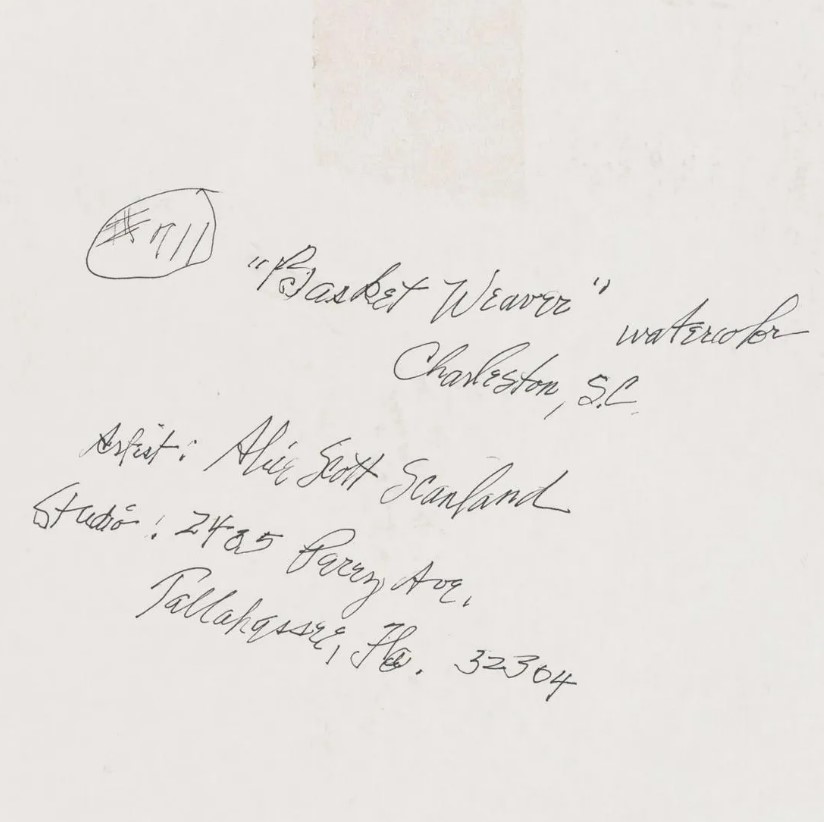 #711
"Basket Weaver" watercolor
Charleston, S.C.
Artist: Alice Scott Scanland
Studio: 2485 Perez Ave.
Tallahassee, Fla. 32304